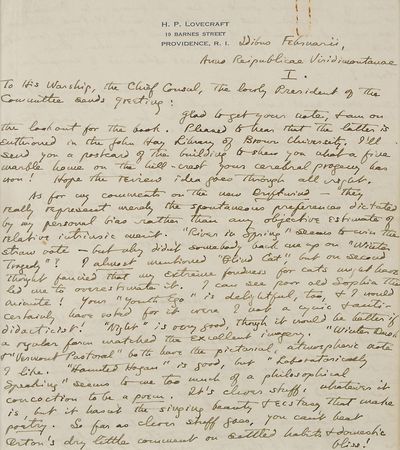 H. P. LOVECRAFT
10 BARNES STREET
PROVIDENCE, R. I.
Idibus Februarii,
Anno Reipublicae Viridimontanae
I.
To His Warship, the Chief Consul, the lowly President of the
Committee sends greeting:
Glad to get your note, & am on
the lookout for the book. Pleased to hear that the latter is
enthroned in the John Hay Library of Brown University. I'll
send you a postcard of the building to shew you what a fine
marble home on the hill-crest your cerebral progeny has
won! Hope the review idea goes through all right.
As for my comments on the new Driftwind — they
really represent merely the spontaneous preferences dictated
by my personal bias rather than any objective estimate of
relative intrinsic merit. "River in Spring" seems to win the
straw vote — but why didn't somebody back me up on "Winter
Tragedy"? I almost mentioned "Blind Cat" but on second
thought fancied that my extreme fondness for cats might have
led me to overestimate it. I can see poor old Sophia the
Ancient! Your "Youth Ego" is delightful, too, & I would
certainly have voted for it were I not a cynic & anti-
didacticist! "Night" is very good, though it would be better if
a regular form matched the excellent imagery. "Winter Dusk"
& "Vermont Pastoral" both have the pictorial, atmospheric note
I like. "Haunted Hogan" is good, but "Laboratorically
Speaking" seems to me too much of a philosophical
concoction to be a poem. It's clever stuff, whatever it
is, but it hasn't the singing beauty & ecstasy that make
poetry. So far as clever stuff goes, you can't beat
dry little comment on settled habits & domestic
bliss!